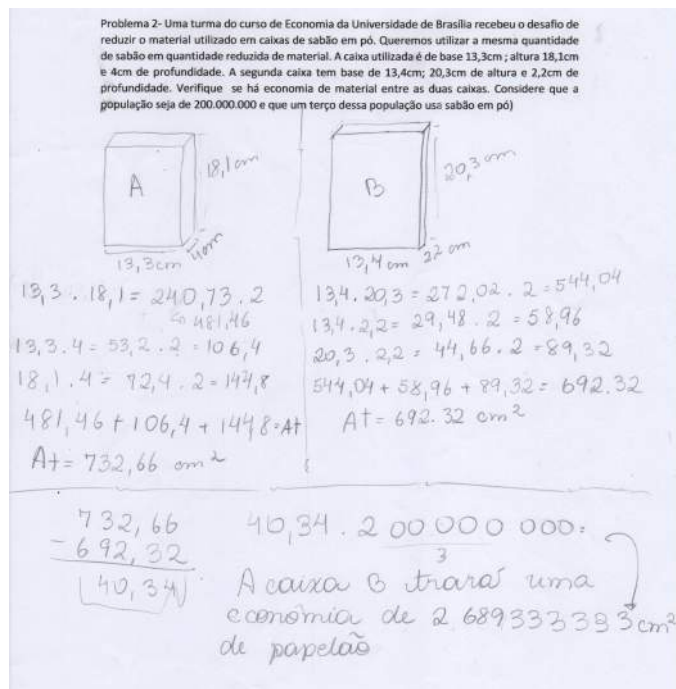 Problema 2- Uma turma do curso de Economia da Universidade de Brasília recebeu o desafio de
reduzir o material utilizado em caixas de sabão em pó. Queremos utilizar a mesma quantidade
de sabão em quantidade reduzida de material. A caixa utilizada é de base 13,3cm ; altura 18,1cm
e 4cm de profundidade. A segunda caixa tem base de 13,4cm; 20,3cm de altura e 2,2cm de
profundidade. Verifique se há economia de material entre as duas caixas. Considere que a
população seja de 200.000.000 e que um terço dessa população usa sabão em pó)
A
18,1cm
4cm
13,3cm
B
20,3cm
13,4cm
22 cm
13,3 . 18,1 = 240,73 . 2
481,46
13,3 . 4 = 53,2 . 2 = 106,4
18,1 . 4 = 72,4 . 2 = 144,8
481,46 + 106,4 + 144,8 = At
At = 732,66 cm²
13,4 . 20,3 = 272,02 . 2 = 544,04
13,4 . 2,2 = 29,48 . 2 = 58,96
20,3 . 2,2 = 44,66 . 2 = 89,32
544,04 + 58,96 + 89,32 = 692.32
At = 692.32 cm²
732,66
- 692,32
40,34
40,34 . 200 000 000 =
3
A caixa B trará uma
economia de 2 689333333 cm²
de papelão